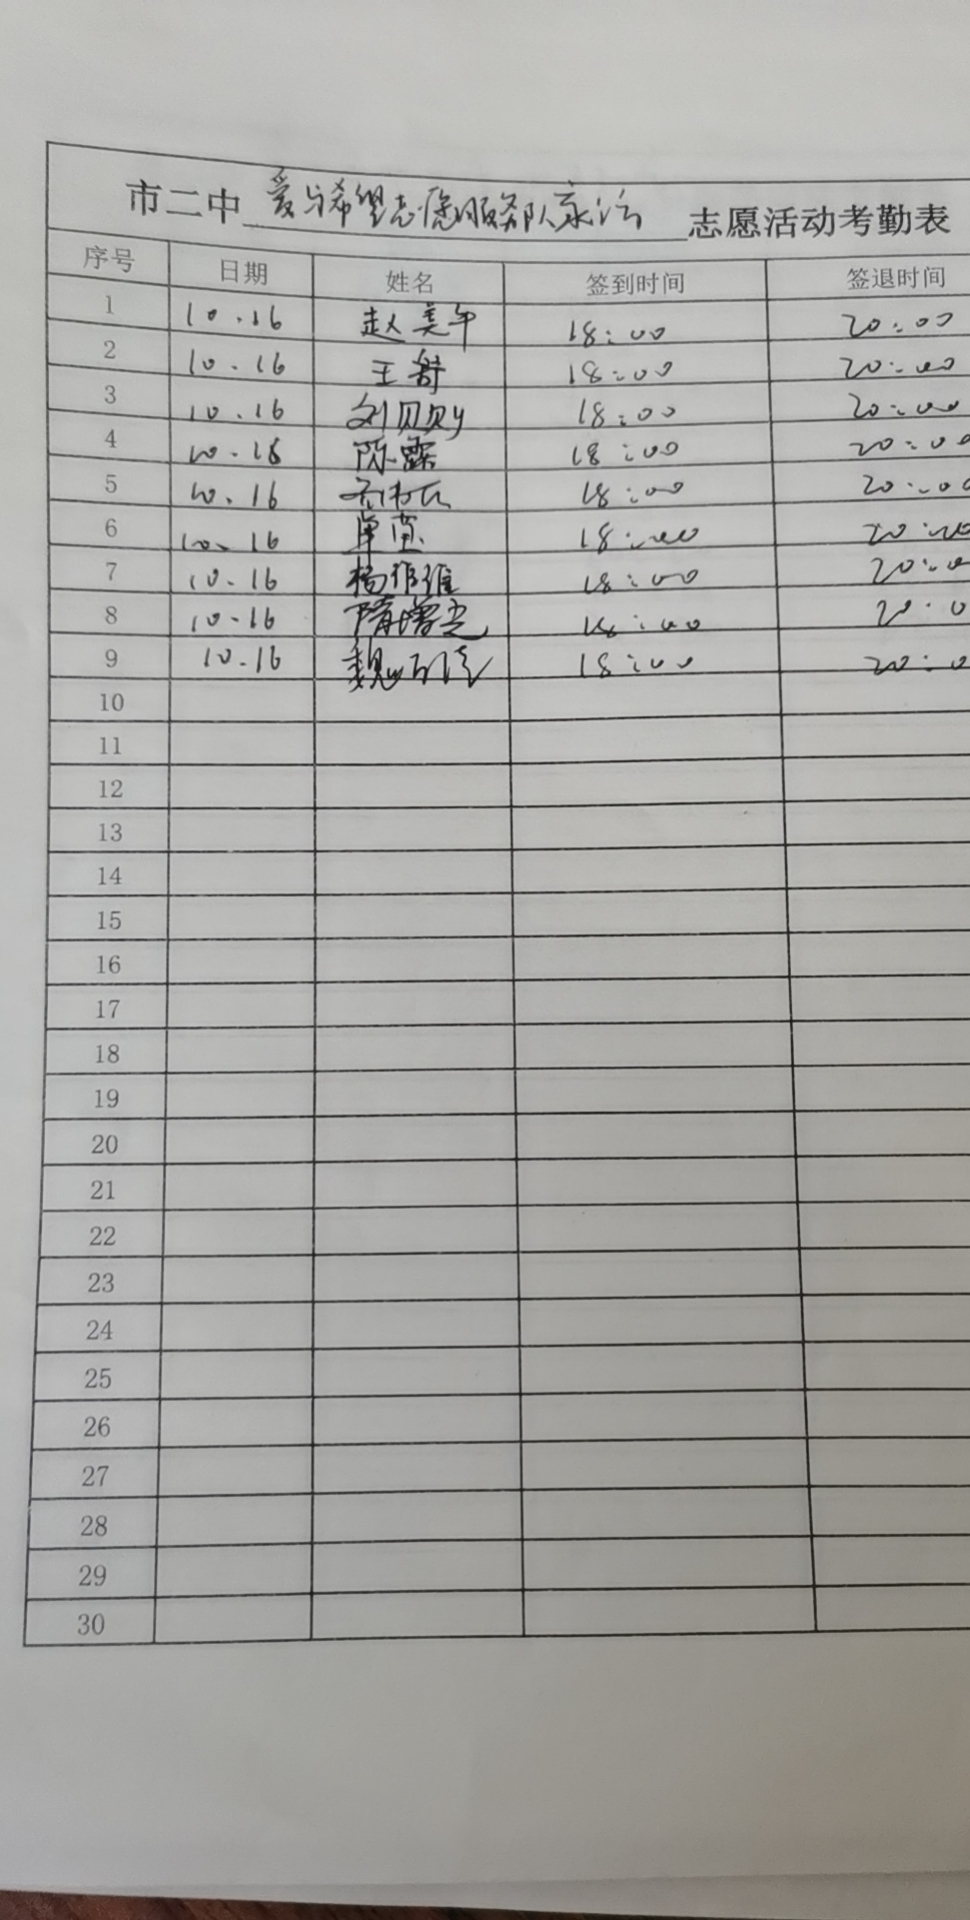 市二中 爱与希望志愿服务队家访 志愿活动考勤表
序号 日期 姓名 签到时间 签退时间
1 10.16 赵美午 18:00 20:00
2 10.16 王舒 18:00 20:00
3 10.16 刘贝贝 18:00 20:00
4 10.16 陈露 18:00 20:00
5 10.16 18:00 20:00
6 10.16 单莹 18:00 20:00
7 10.16 杨维维 18:00 20:0
8 10.16 隋增光 18:00 20:0
9 10.16 魏 18:00 20:0
10
11
12
13
14
15
16
17
18
19
20
21
22
23
24
25
26
27
28
29
30